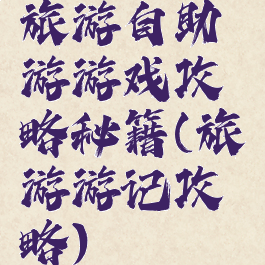 旅游自助
游游戏攻
略秘籍(旅
游游记攻
略)